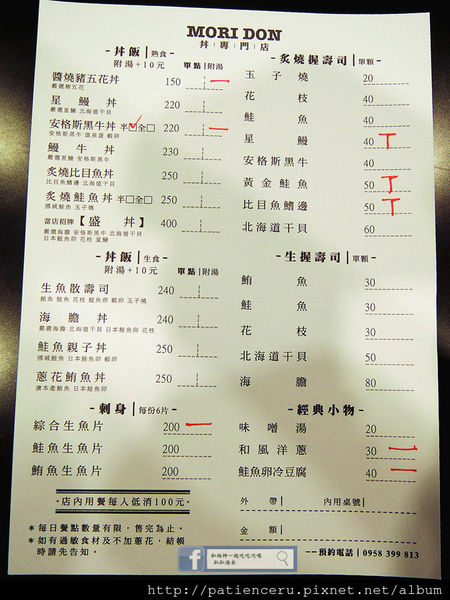 MORI DON
丼 | 專 | 門 | 店
- 丼飯 | 熟食 -
附湯+10元 單點 | 附湯
醬燒豬五花丼 150
嚴選豬五花
星鰻丼 220
嚴選星鰻 北海道干貝
安格斯黑牛丼 半□全□ 220
安格斯黑牛 溫泉蛋 蝦卵
鰻牛丼 230
嚴選星鰻 安格斯黑牛
炙燒比目魚丼 250
比目魚鰭邊 北海道干貝
炙燒鮭魚丼 半□全□ 250
挪威鮭魚 玉子燒
當店招牌【盛丼】 400
嚴選海膽 安格斯黑牛 北海道干貝
日本鮭魚卵 花枝 星鰻
- 丼飯 | 生食 -
附湯+10元 單點 | 附湯
生魚散壽司 240
鮪魚 鮭魚 花枝 鮭魚卵 蝦卵 玉子燒
海膽丼 240
嚴選海膽 北海道干貝 日本鮭魚卵 花枝
鮭魚親子丼 250
挪威鮭魚 日本鮭魚卵 蝦卵
蔥花鮪魚丼 250
濱本產鮪魚 日本鮭魚卵
- 刺身 | 每份6片 -
綜合生魚片 200
鮭魚生魚片 200
鮪魚生魚片 200
·店內用餐每人低消100元·
*每日餐點數量有限,售完為止。
*如有過敏食材及不加蔥花,結帳
時請先告知。
- 炙燒握壽司 | 單顆 -
玉子燒 20
花枝 40
鮭魚 40
星鰻 40
安格斯黑牛 40
黃金鮭魚 50
比目魚鰭邊 50
北海道干貝 60
- 生握壽司 | 單顆 -
鮪魚 30
鮭魚 30
花枝 30
北海道干貝 50
海膽 80
- 經典小物 -
味噌湯 20
和風洋蔥 30
鮭魚卵冷豆腐 40
外帶 | 內用桌號 |
金額 |
---預約電話 | 0958 399 813
f 和尚神一起吃吃嗚嘴
趴趴造去
http://patienceru.pixnet.net/album